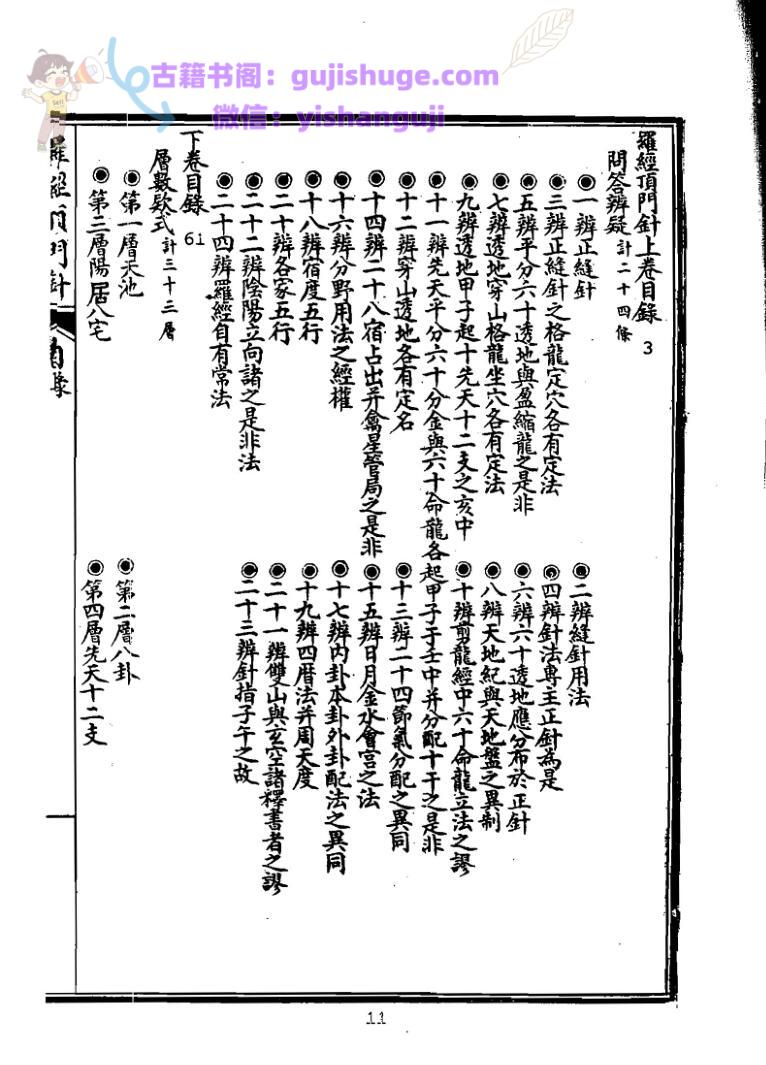 古籍书阁：gujishuge.com
微信：yishanguji
羅經頂門針上卷目錄 3
問答辨疑 計二十四條
一辨正縫針
二辨縫針用法
三辨正縫針之格龍定穴各有定法
四辨針法專主正針為是
五辨平分六十透地與盈縮龍之是非
六辨六十透地應分布於正針
七辨透地穿山格龍坐穴各有定法
八辨天地紀與天地盤之異制
九辨透地甲子起十先天十二支之亥中
十辨剪龍經中六十命龍立法之謬
十一辨先天平分六十分金與六十命龍各起甲子于壬中并分配十干之是非
十二辨穿山透地各有定名
十三辨二十四節氣分配之異同
十四辨二十八宿占出并禽星管局之是非
十五辨日月金水會宮之法
十六辨分野用法之經權
十七辨内卦本卦外卦配法之異同
十八辨宿度五行
十九辨四曆法并周天度
二十辨各家五行
二十一辨雙山與玄空諸釋書者之謬
二十二辨陰陽立向諸之是非法
二十三辨針指子午之故
二十四辨羅經自有常法
下卷目錄 61
層數款式 計三十三層
第一層天池
第二層八卦
第三層陽居八宅
第四層先天十二支
羅經頂門針
11